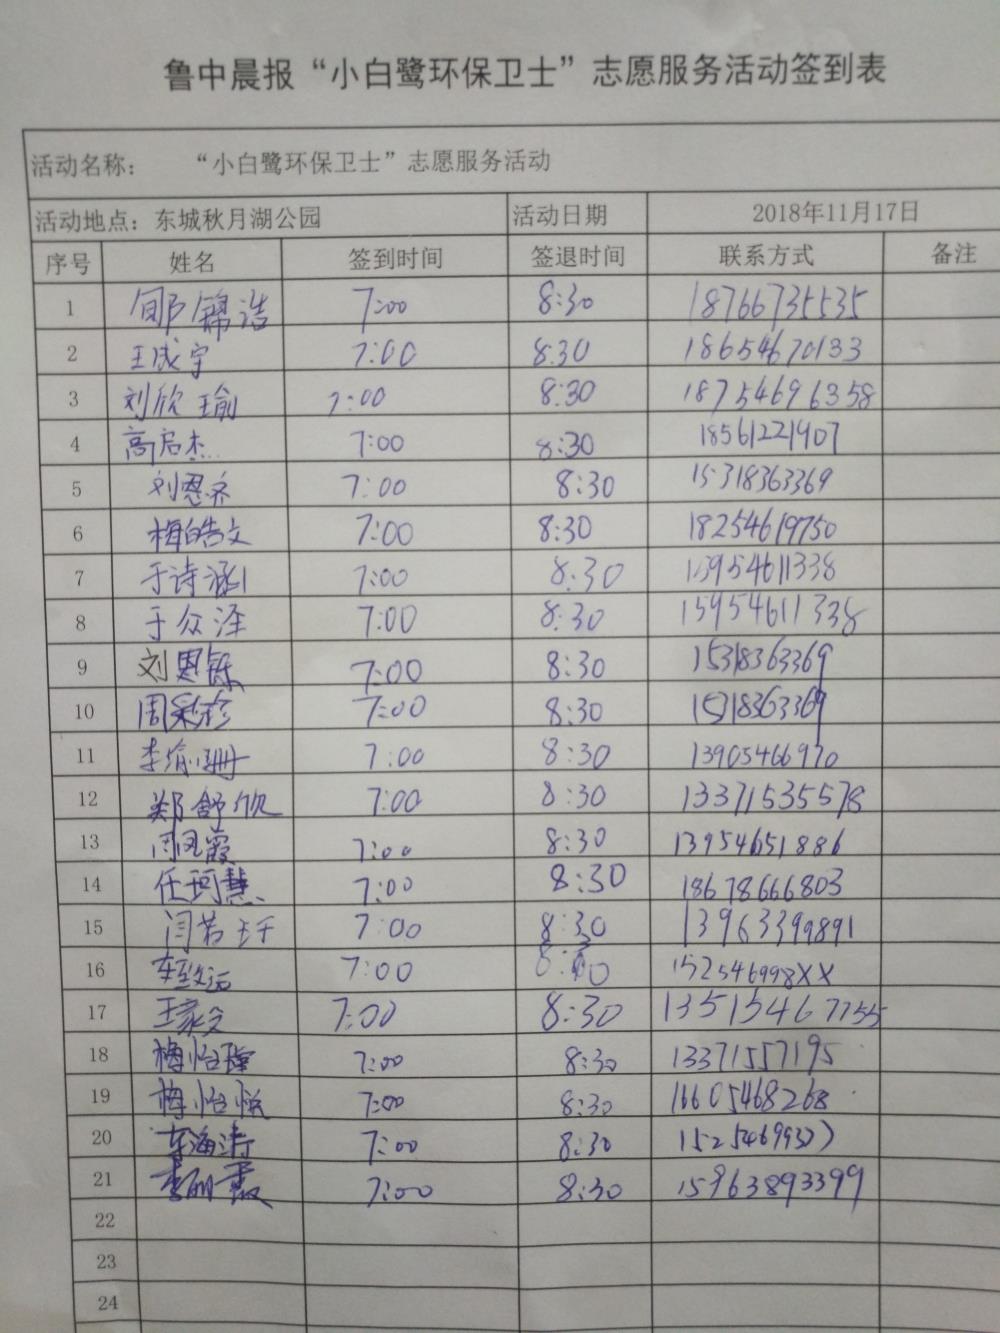 鲁中晨报“小白鹭环保卫士”志愿服务活动签到表
活动名称： “小白鹭环保卫士”志愿服务活动
活动地点：东城秋月湖公园 活动日期 2018年11月17日
序号 姓名 签到时间 签退时间 联系方式 备注
1 郇锦浩 7:00 8:30 18766735535
2 王成宇 7:00 8:30 18654670133
3 刘欣瑜 7:00 8:30 18754696358
4 高启杰 7:00 8:30 18561221907
5 刘恩齐 7:00 8:30 15318363369
6 梅皓文 7:00 8:30 18254619750
7 于诗涵 7:00 8:30 15954611338
8 于众泽 7:00 8:30 15954611338
9 刘恩铄 7:00 8:30 15318363369
10 周彩珍 7:00 8:30 15318363369
11 李瑜珊 7:00 8:30 13905466970
12 郑舒欣 7:00 8:30 13371535578
13 闫凤霞 7:00 8:30 13954651886
14 任珂慧 7:00 8:30 18678666803
15 闫若玗 7:00 8:30 13963399891
16 车致远 7:00 152546998XX
17 王家文 7:00 8:30 13515467755
18 梅怡瑾 7:00 8:30 13371557195
19 梅怡悦 7:00 8:30 16605468268
20 车海涛 7:00 8:30
21 李丽霞 7:00 8:30 15963893399
22
23
24